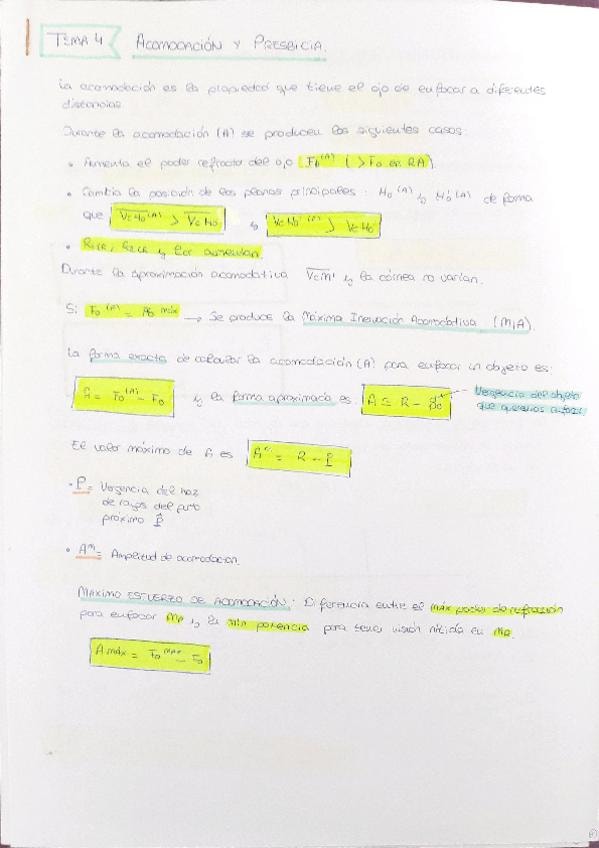 TEMA 4 ACOMODACIÓN Y PRESBICIA.
La acomodación es la propiedad que tiene el ojo de enfocar a diferentes
distancias.
Durante la acomodación (A) se producen los siguientes casos:
• Aumenta el poder refractor del ojo Fo(A) (> Fo en RA).
• Cambia la posición de los planos principales: Ho(A) y H'o(A) de forma
que VcHo(A) > VcHo y VcH'o(A) > VcH'o
aumentan.
Durante la aproximación acomodativa VcM' y la córnea no varían.
Si Fo(A) = Fo máx → Se produce la Máxima Inervación Acomodativa (MIA).
La forma exacta de calcular la acomodación (A) para enfocar un objeto es:
A = Fo(A) - Fo y la forma aproximada es: A ≃ R - Vergencia del objeto
que queremos enfocar.
El valor máximo de A es Am = R - P
• P = Vergencia del haz
de rayos del punto
próximo P
• Am = Amplitud de acomodación.
MÁXIMO ESFUERZO DE ACOMODACIÓN: Diferencia entre el máx poder de refracción
para enfocar MP y la mín potencia para tener visión nítida en MR.
A máx = Fo máx - Fo